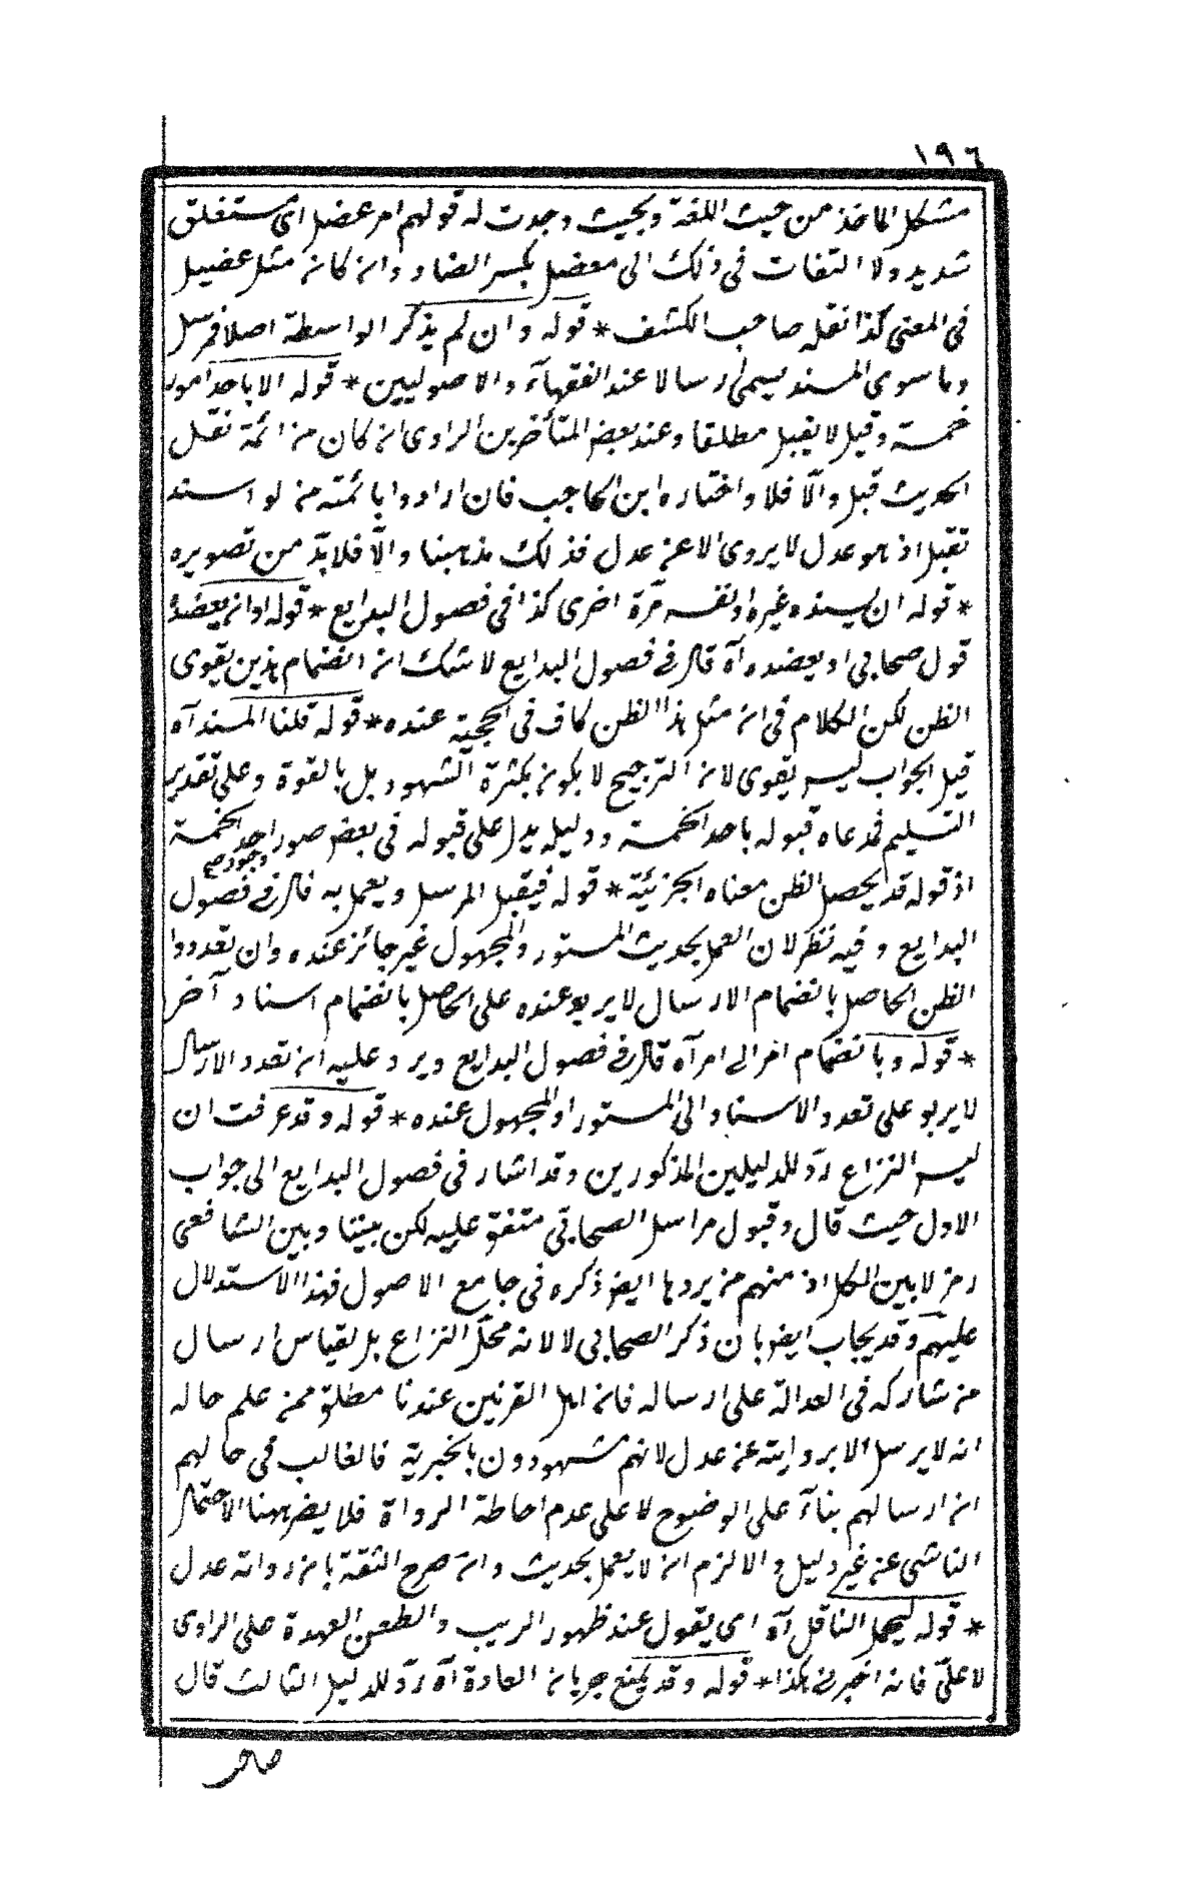 ١٩٦
مشكل المأخذ من حيث اللغة وبحيث وجدت له قولهم امر عضل اى مستغلق
شديد ولا التفات فى ذلك الى معضل بكسر الضاد وان كان مثل عضيل
فى المعنى كذا نقله صاحب الكشف * قوله وان لم يذكر الواسطة اصلا فمرسل
وما سوى المسند يسمى ارسالا عند الفقهآء والاصوليين * قوله الا باحد امور
خمسة وقيل لا يقبل مطلقا وعند بعض المتأخرين الراوى ان كان من ائمة نقل
الحديث قبل والّا فلا واختاره ابن الحاجب فان ارادوا بائمته من لو اسند
تقبل اذ هو عدل لا يروى الا عن عدل فذلك مذهبنا والّا فلا بدّ من تصويره
* قوله ان يسنده غيره او نفسه مرّة اخرى كذا فى فصول البدايع * قوله او ان يعضده
قول صحابى او يعضده آه قال فى فصول البدايع لا شك ان انضمام هذين يقوى
الظن لكن الكلام فى ان مثل هذا الظن كاف فى الحجية عنده * قوله قلنا المسند آه
قيل الجواب ليس يقوى لان الترجيح لا يكون بكثرة الشهود بل بالقوة وعلى تقدير
التسليم فمدعاه قبوله باحد الخمسة ودليله يدل على قبوله فى بعض صور احد الخمسة
وجوده صح
اذ قوله قد يحصل الظن معناه الجزئية * قوله فيقبل المرسل ويعمل به قال فى فصول
البدايع وفيه نظر لان العمل بحديث المستور والمجهول غير جائز عنده وان تعددوا
الظن الحاصل بانضمام الارسال لا يربو عنده على الحاصل بانضمام اسناد آخر
* قوله وبانضمام امر الى امر آه قال فى فصول البدايع ويرد عليه ان تعدد الارسال
لا يربو على تعدد الاسناد الى المستور او المجهول عنده * قوله وقد عرفت ان
ليس النزاع ردّ للدليلين المذكورين وقد اشار فى فصول البدايع الى جواب
الاول حيث قال وقبول مراسل الصحابى متفق عليه لكن بيننا وبين الشافعى
رمز لا بين الكل اذ منهم من يردها ايضر ذكره فى جامع الاصول فهذا الاستدلال
عليهم وقد يجاب ايضر بان ذكر الصحابى لا لانه محلّ النزاع بل لقياس ارسال
من شاركه فى العدالة على ارساله فان اهل القرنين عندنا مطلق ممن علم حاله
انه لا يرسل الا بروايته عن عدل لانهم مشهودون بالخيرية فالغالب فى حالهم
ان ارسالهم بنآء على الوضوح لا على عدم احاطة الرواة فلا يضر ههنا الاحتمال
الناشى عن غير دليل والا لزم ان لا يعمل بحديث وان صرح الثقة بان رواته عدل
* قوله ليحمل الناقل آه اى يقول عند ظهور الريب والطعن العهدة على الراوى
لا علىّ فانه اخبرنى هكذا * قوله وقد يمنع جريان العادة آه ردّ للدليل الثالث قال